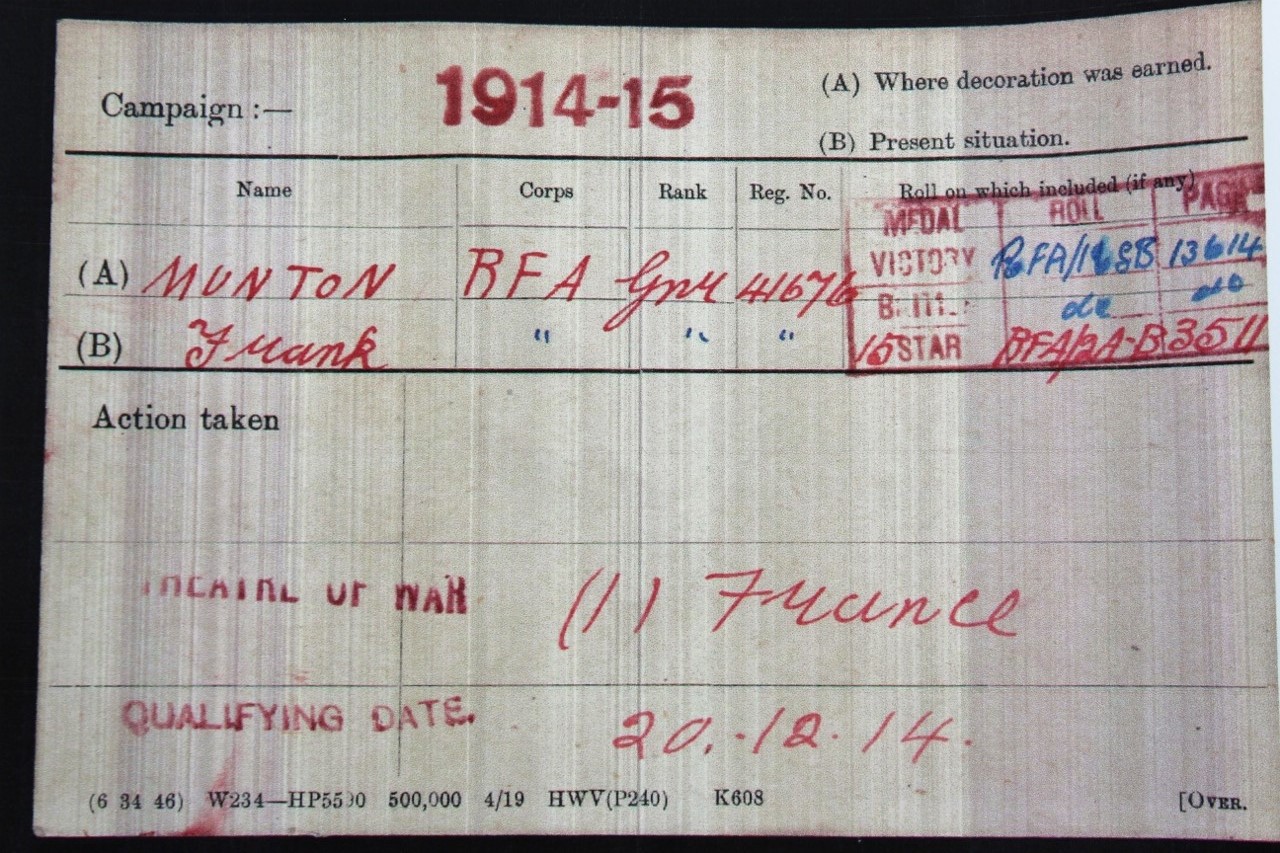 Campaign :— 1914-15
(A) Where decoration was earned.
(B) Present situation.
Name Corps Rank Reg. No. Roll on which included (if any)
MEDAL ROLL PAGE
(A) MUNTON RFA Gnr 41676 VICTORY RFA/ B 13614
do do
(B) Frank " " " 15 STAR RFA/2A-B 3511
Action taken
THEATRE OF WAR (1) France
QUALIFYING DATE. 20.-12.14.
(6 34 46) W234—HP5590 500,000 4/19 HWV(P240) K608 [OVER.